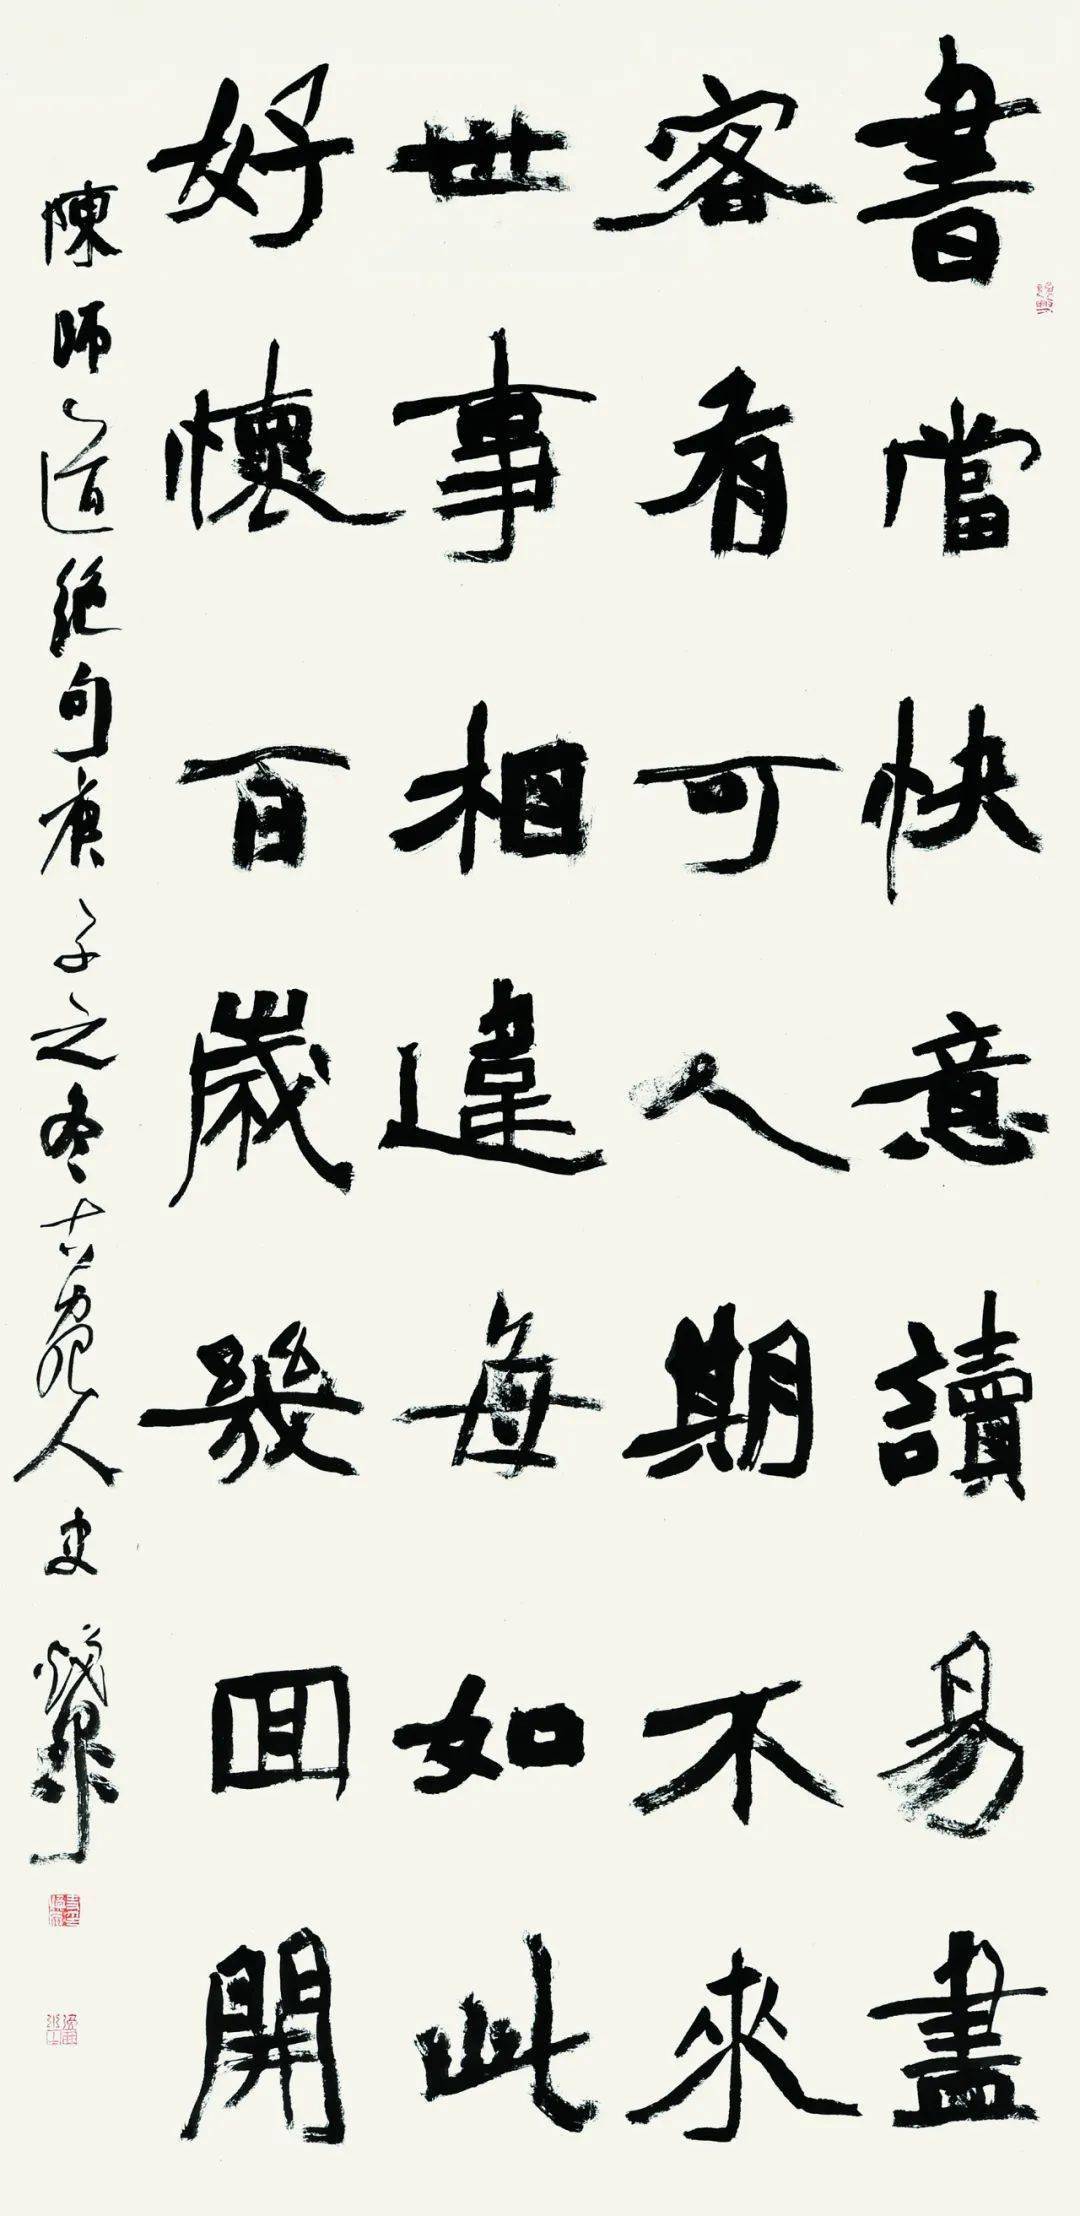 書當快意讀易盡
客有可人期不來
世事相違每如此
好懷百歲幾回開
陳師道絕句庚子之冬古宛人史煥